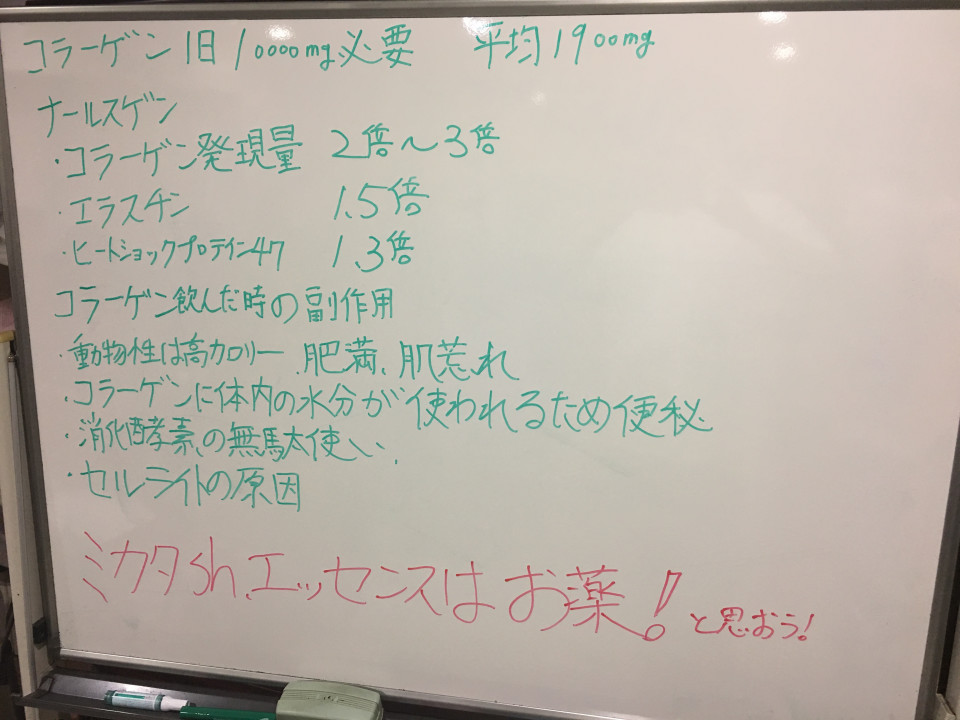 コラーゲン 1日 10000mg必要 平均1900mg
ナールスゲン
・コラーゲン発現量 2倍〜3倍
・エラスチン 1.5倍
・ヒートショックプロテイン47 1.3倍
コラーゲン飲んだ時の副作用
・動物性は高カロリー、肥満、肌荒れ
・コラーゲンに体内の水分が使われるため便秘
・消化酵素の無駄使い、
・セルライトの原因
ミカタsh.エッセンスはお薬!と思おう!